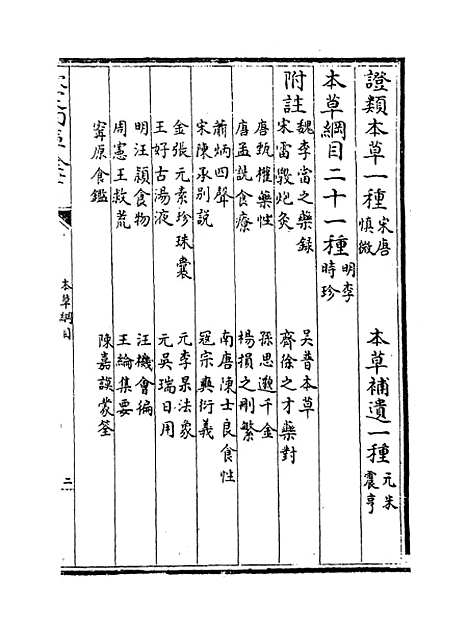 證類本草一種 宋唐慎微 本草補遺一種 元朱震亨
本草綱目二十一種 明李時珍
附註
魏李當之藥錄 吳普本草
宋雷斆炮灸 齊徐之才藥對
唐甄權藥性 孫思邈千金
唐孟詵食療 楊損之刪繁
蕭炳四聲 南唐陳士良食性
宋陳承別說 寇宗奭衍義
金張元素珍珠囊 元李杲法象
王好古湯液 元吳瑞日用
明汪頴食物 汪機會編
周憲王救荒 王綸集要
寗原食鑑 陳嘉謨蒙筌
本草綱目
二